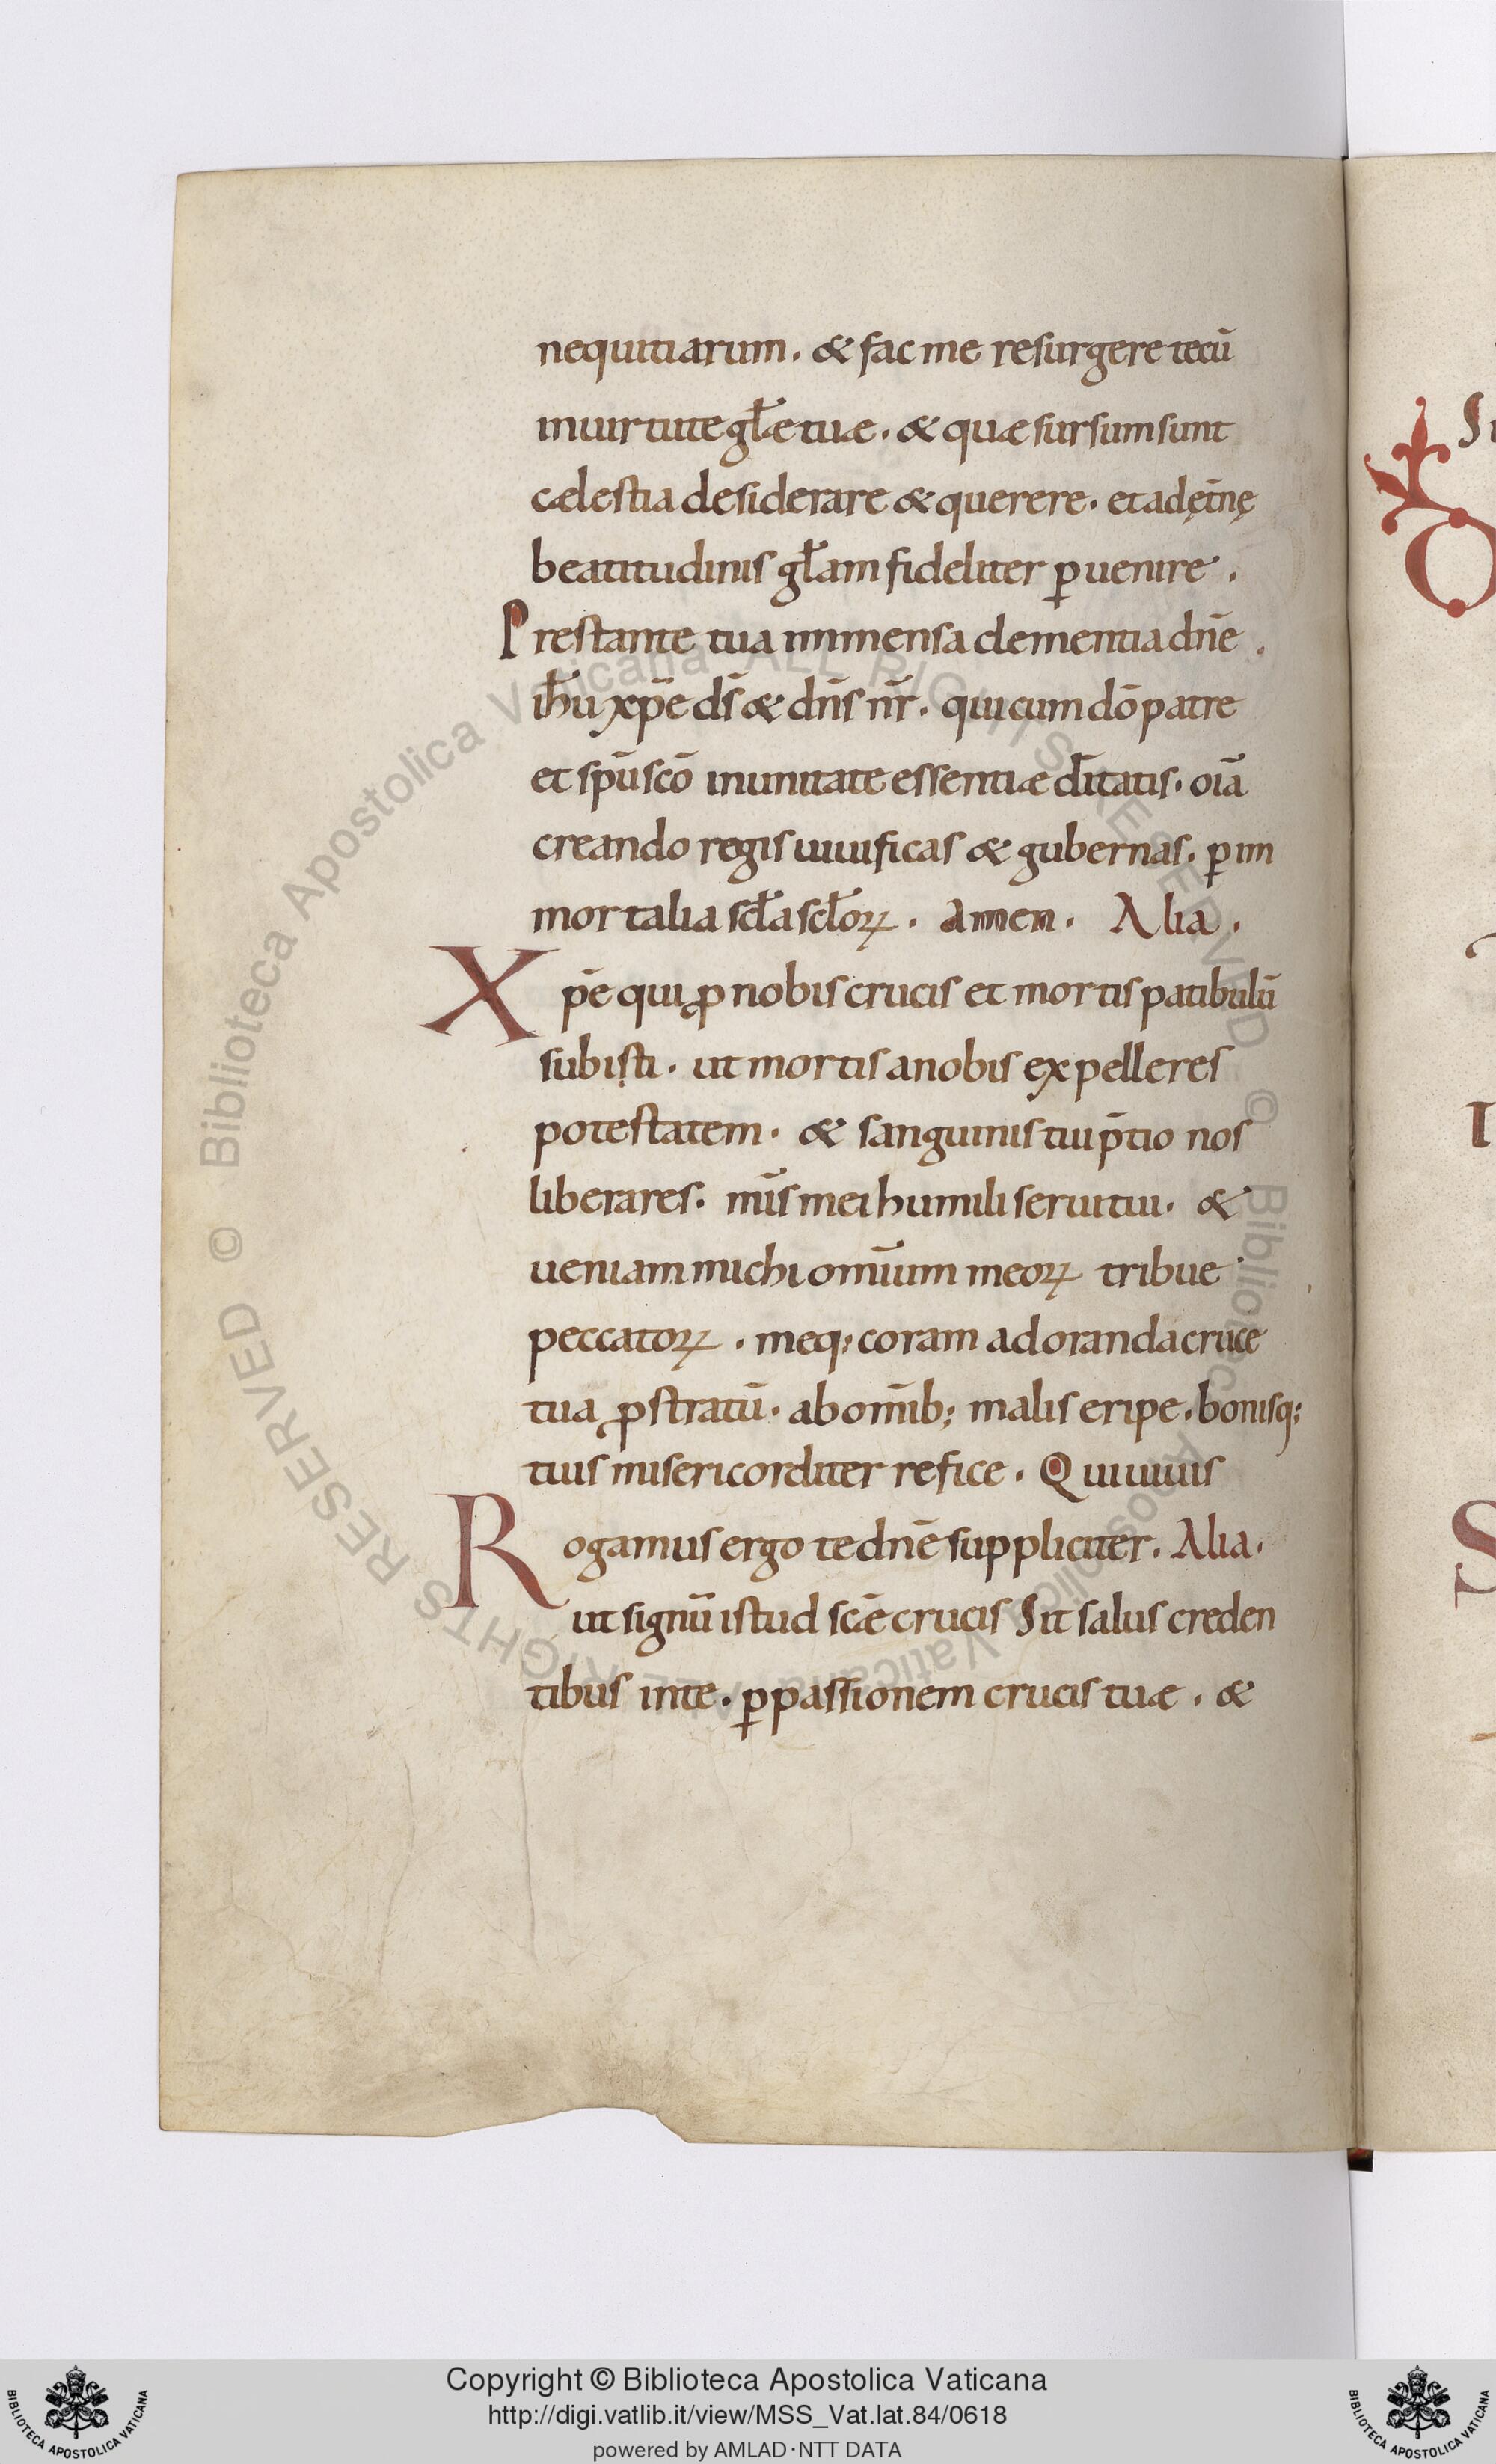 nequitiarum. & fac me resurgere tecū
in uirtute gl̄ae tuae. & quae sursum sunt
caelestia desiderare & querere. et ad ęt̄nę
beatitudinis gl̄am fideliter ꝑuenire.
Prestante tua immensa clementia dn̄e.
ih̄u xp̄e ds̄ & dn̄s nr̄. qui cum dō patre
et sp̄u scō in unitate essentiae d̄itatis. oīa
creando regis uiuificas & gubernas. ꝑ im
mortalia scl̄a scl̄oꝝ. Amen. Alia.
Xp̄e qui ꝓ nobis crucis et mortis patibulū
subisti. ut mortis a nobis expelleres
potestatem. & sanguinis tui p̄tio nos
liberares. mīs mei humili serui tui. &
ueniam michi omīum meoꝝ tribue
peccatoꝝ. meq; coram adoranda cruce
tua ꝓstratū. ab omīb; malis eripe. bonisq;
tuis misericorditer refice. Qui uiuis
Rogamus ergo te dn̄e suppliciter. Alia.
ut signū istud scāe crucis Sit salus creden
tibus in te. ꝑ passionem crucis tuae. &
Copyright © Biblioteca Apostolica Vaticana
http://digi.vatlib.it/view/MSS_Vat.lat.84/0618
powered by AMLAD·NTT DATA
BIBLIOTECA APOSTOLICA VATICANA
BIBLIOTECA APOSTOLICA VATICANA
© Biblioteca Apostolica Vaticana ALL RIGHTS RESERVED © Biblioteca Apostolica Vaticana ALL RIGHTS RESERVED